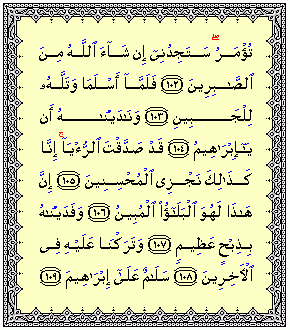 تُؤْمَرُ ۖ سَتَجِدُنِىٓ إِن شَآءَ ٱللَّـهُ مِنَ
ٱلصَّـٰبِرِينَ ﴿١٠٢﴾ فَلَمَّآ أَسْلَمَا وَتَلَّهُۥ
لِلْجَبِينِ ﴿١٠٣﴾ وَنَـٰدَيْنَـٰهُ أَن
يَـٰٓإِبْرَٰهِيمُ ﴿١٠٤﴾ قَدْ صَدَّقْتَ ٱلرُّءْيَآ ۚ إِنَّا
كَذَٰلِكَ نَجْزِى ٱلْمُحْسِنِينَ ﴿١٠٥﴾ إِنَّ
هَـٰذَا لَهُوَ ٱلْبَلَـٰٓؤُا۟ ٱلْمُبِينُ ﴿١٠٦﴾ وَفَدَيْنَـٰهُ
بِذِبْحٍ عَظِيمٍ ﴿١٠٧﴾ وَتَرَكْنَا عَلَيْهِ فِى
ٱلْـَٔاخِرِينَ ﴿١٠٨﴾ سَلَـٰمٌ عَلَىٰٓ إِبْرَٰهِيمَ ﴿١٠٩﴾